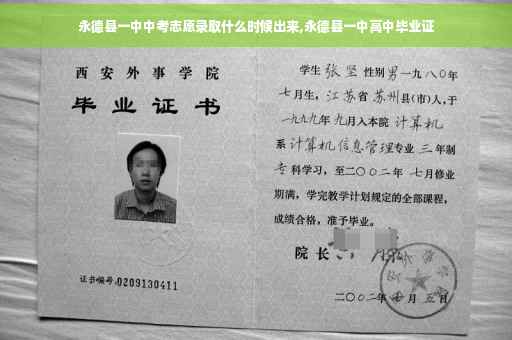 永德县一中中考志愿录取什么时候出来,永德县一中高中毕业证
西安外事学院
毕业证书
证书编号:0209130411
学生张坚性别男一九八〇年
七月生,江苏省苏州县(市)人,于
一九九九年九月入本院计算机
系计算机信息管理专业三年制
专科学习,至二〇〇二年七月修业
期满,学完教学计划规定的全部课程,
成绩合格,准予毕业。
院长
二〇〇二年 月五日